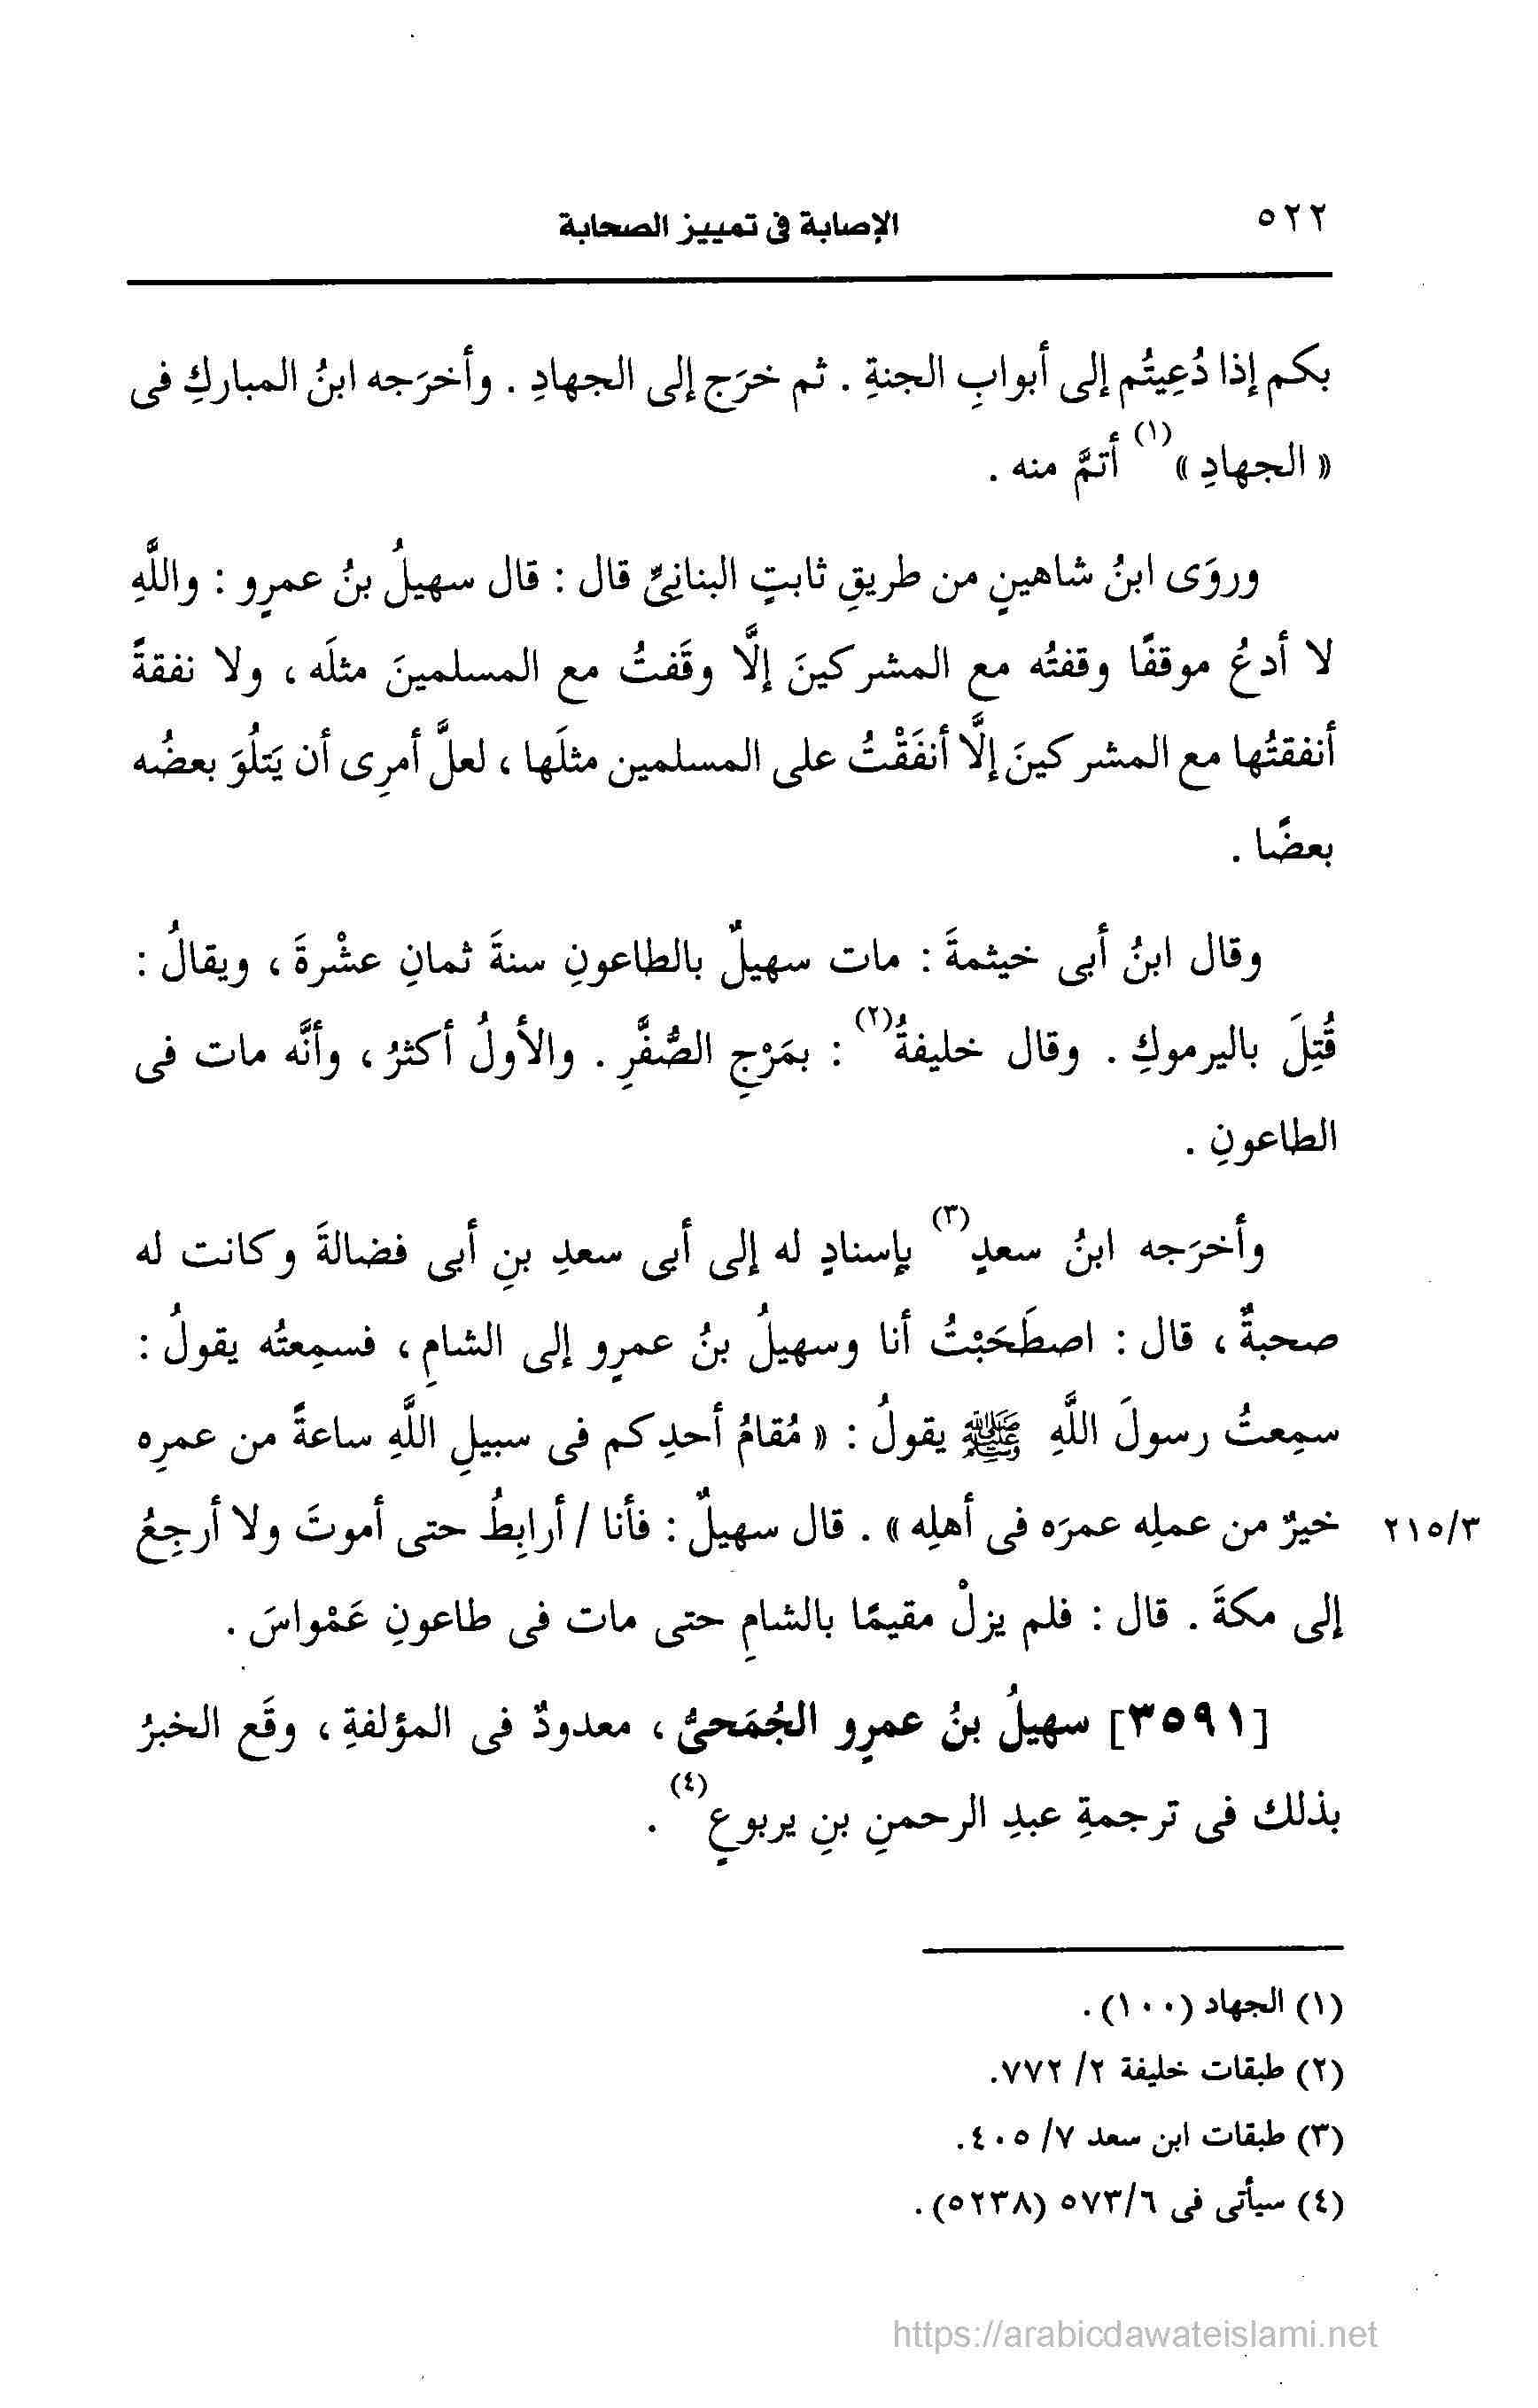 ٥٢٢
الإصابة فى تمييز الصحابة
بكم إذا دُعِيتُم إلى أبوابِ الجنةِ . ثم خرَج إلى الجهادِ . وأخرَجه ابنُ المباركِ فى
« الجهادِ »(١) أتمَّ منه .
وروَى ابنُ شاهينٍ من طريقِ ثابتٍ البنانِىِّ قال : قال سهيلُ بنُ عمرٍو : واللَّهِ
لا أدعُ موقفًا وقفتُه مع المشركينَ إلَّا وقَفتُ مع المسلمينَ مثلَه ، ولا نفقةً
أنفقتُها مع المشركينَ إلَّا أنفَقْتُ على المسلمين مثلَها ، لعلَّ أمرِى أن يَتلُوَ بعضُه
بعضًا .
وقال ابنُ أبى خيثمةَ : مات سهيلٌ بالطاعونِ سنةَ ثمانِ عشْرةَ ، ويقالُ :
قُتِلَ باليرموكِ . وقال خليفةُ(٢) : بمَرْجِ الصُّفَّرِ . والأولُ أكثرُ ، وأنَّه مات فى
الطاعونِ .
وأخرَجه ابنُ سعدٍ(٣) بإسنادٍ له إلى أبى سعدِ بنِ أبى فضالةَ وكانت له
صحبةٌ ، قال : اصطَحَبْتُ أنا وسهيلُ بنُ عمرٍو إلى الشامِ ، فسمِعتُه يقولُ :
سمِعتُ رسولَ اللَّهِ ﷺ يقولُ : « مُقامُ أحدِكم فى سبيلِ اللَّهِ ساعةً من عمرِه
خيرٌ من عملِه عمرَه فى أهلِه » . قال سهيلٌ : فأنا / أرابِطُ حتى أموتَ ولا أرجِعُ
٢١٥/٣
إلى مكةَ . قال : فلم يزلْ مقيمًا بالشامِ حتى مات فى طاعونِ عَمْواسَ .
[٣٥٩١] سهيلُ بنُ عمرٍو الجُمَحىُّ ، معدودٌ فى المؤلفةِ ، وقَع الخبرُ
بذلك فى ترجمةِ عبدِ الرحمنِ بنِ يربوعٍ(٤) .
(١) الجهاد (١٠٠) .
(٢) طبقات خليفة ٢/ ٧٧٢.
(٣) طبقات ابن سعد ٧/ ٤٠٥.
(٤) سيأتى فى ٥٧٣/٦ (٥٢٣٨).
https://arabicdawateislami.net